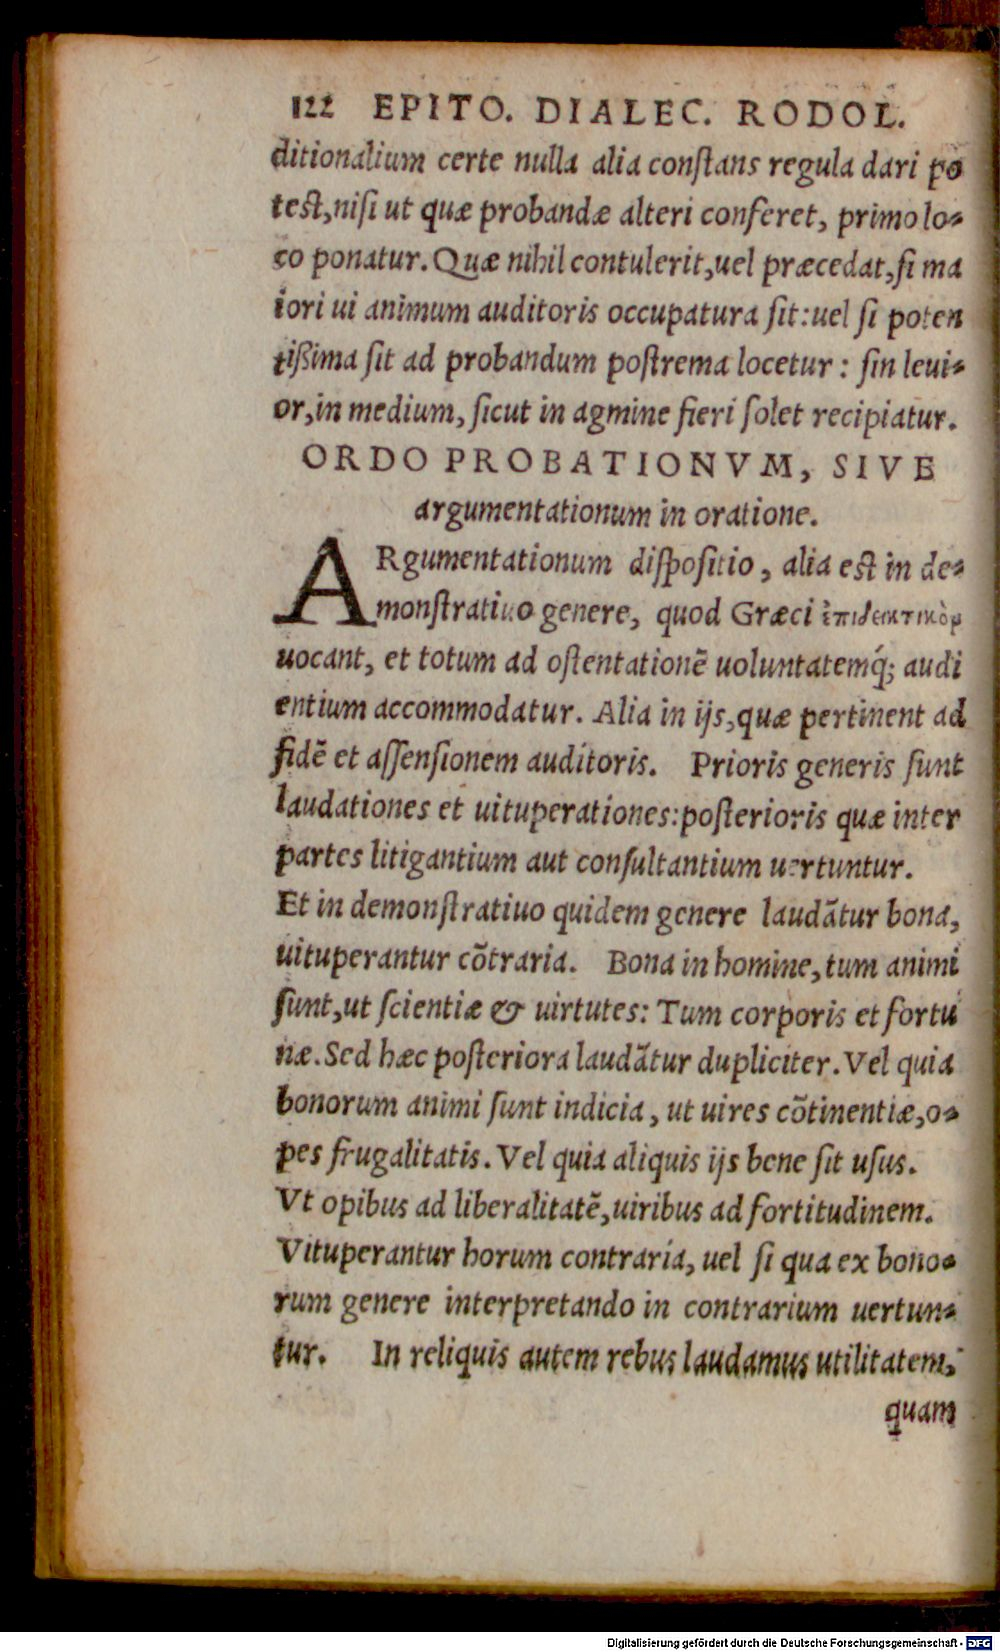 122 EPITO. DIALEC. RODOL.
ditionalium certe nulla alia conſtans regula dari po
teſt,niſi ut quæ probandæ alteri conferet, primo lo-
co ponatur. Quæ nihil contulerit,uel præcedat,ſi ma
iori ui animum auditoris occupatura ſit:uel ſi poten
tißima ſit ad probandum poſtrema locetur: ſin leui-
or,in medium, ſicut in agmine fieri ſolet recipiatur.
ORDO PROBATIONVM, SIVE
argumentationum in oratione.
ARgumentationum diſpoſitio, alia eſt in de-
monſtratiuo genere, quod Græci ἐπιδεικτικὸν
uocant, et totum ad oſtentationē uoluntatemq́; audi
entium accommodatur. Alia in ijs,quæ pertinent ad
fidē et aſſenſionem auditoris. Prioris generis ſunt
laudationes et uituperationes:poſterioris quæ inter
partes litigantium aut conſultantium uertuntur.
Et in demonſtratiuo quidem genere laudātur bona,
uituperantur cōtraria. Bona in homine, tum animi
ſunt,ut ſcientiæ & uirtutes: Tum corporis et fortu
næ. Sed hæc poſteriora laudātur dupliciter. Vel quia
bonorum animi ſunt indicia, ut uires cōtinentiæ,o-
pes frugalitatis. Vel quia aliquis ijs bene ſit uſus.
Vt opibus ad liberalitatē,uiribus ad fortitudinem.
Vituperantur horum contraria, uel ſi qua ex bono-
rum genere interpretando in contrarium uertun-
tur. In reliquis autem rebus laudamus utilitatem,
quam
Digitalisierung gefördert durch die Deutsche Forschungsgemeinschaft - DFG